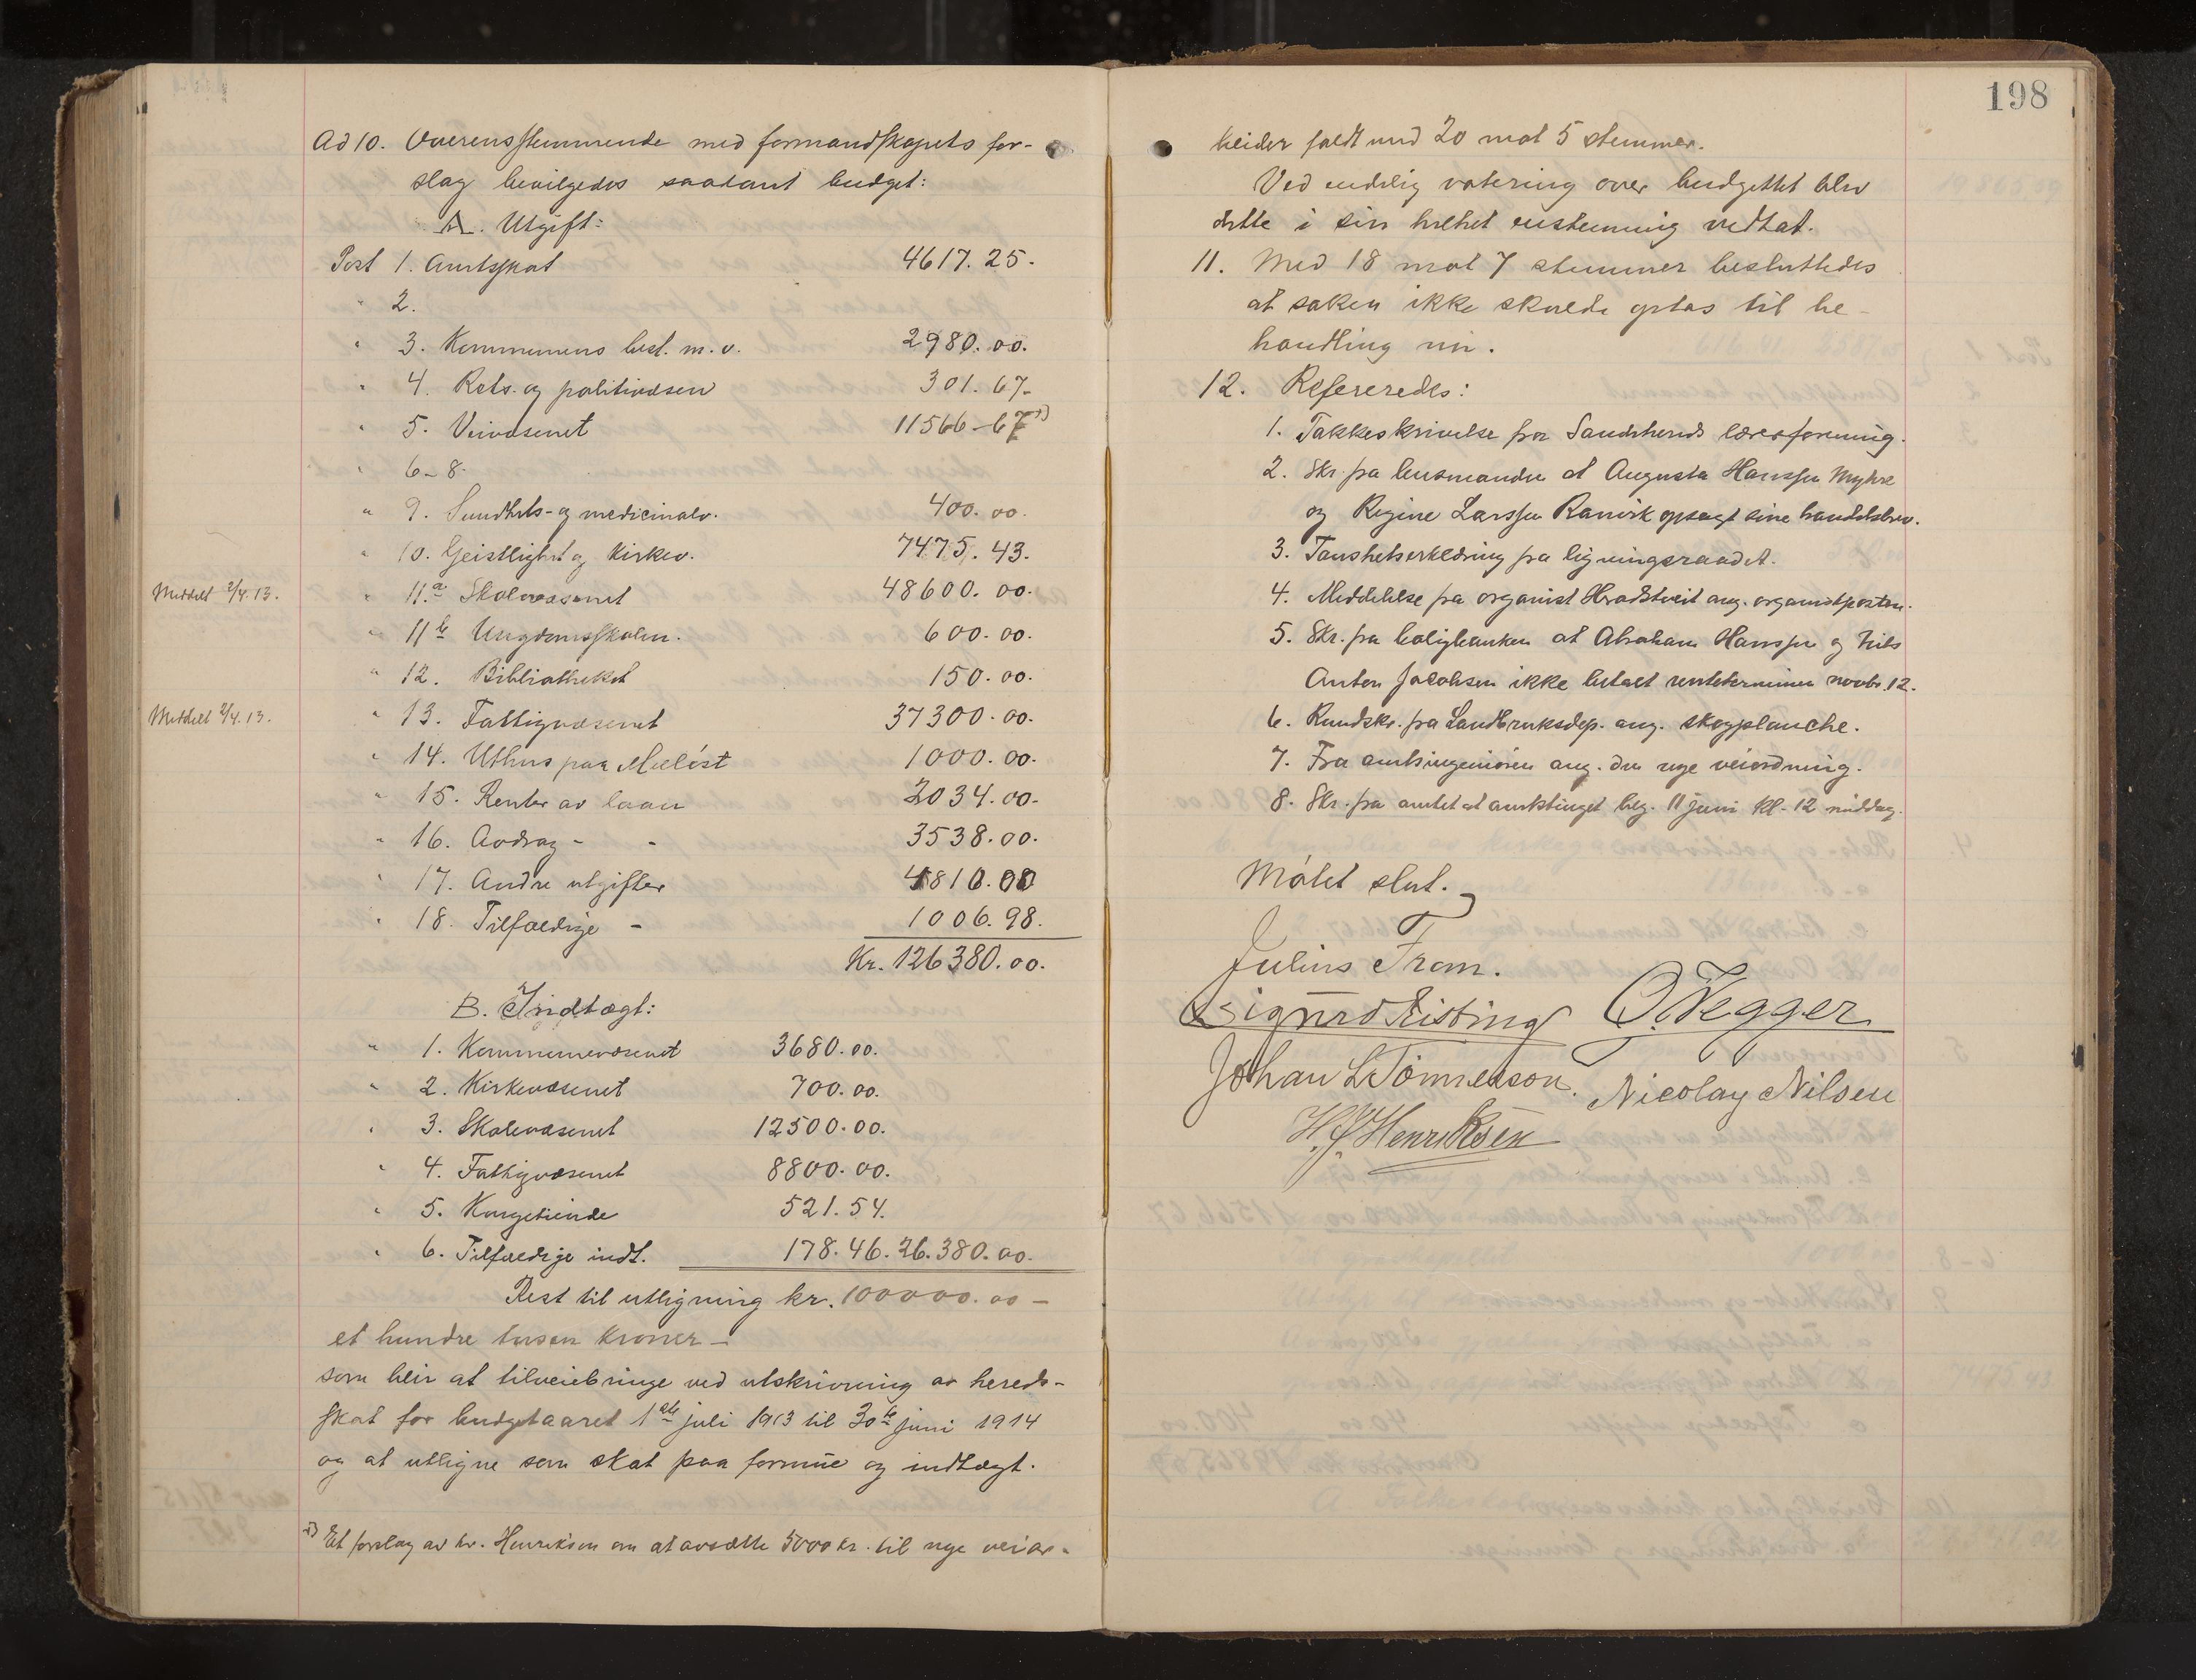 Ad 10. Overensstemmende med formandskapets for-
slag bevilgedes saadant budget:
A. Utgift:
Post 1. Amtsskat 4617.25.
" 2.
" 3. Kommunens best. m.v. 2980.00.
" 4. Rets- og politivæsen 301.67-
" 5. Veivæsenet 11566-67 *)
" 6-8.
" 9. Sundhets- og medicinalv. 400.00.
" 10. Geistlighet og kirkev. 7475.43.
Meddelt 2/4.13. " 11.a Skolevæsenet 48600.00.
" 11b Ungdomsskolen. 600.00.
" 12. Bibliotheket 150.00.
Meddelt 2/4.13. " 13. Fattigvæsenet 37300.00.
" 14. Uthus paa 1000.00.
" 15. Renter av laan 2034.00-
" 16. Avdrag - - 3538.00.
" 17. Andre utgifter 4810.00
" 18. Tilfældige - 1006.98.
Kr. 126380.00.
B. Indtægt:
" 1. Kommunevæsenet 3680.00.
" 2. Kirkevæsenet 700.00.
" 3. Skolevæsenet 12500.00.
" 4. Fattigvæsenet 8800.00.
" 5. Kongetiende 521.54.
" 6. Tilfældige indt. 178.46. 26.380.00.
Rest til utligning kr. 100000.00 -
et hundre tusen kroner -
som blir at tilveiebringe ved utskrivning av hereds-
skat for budgetaaret 1ste juli 1913 til 30te juni 1914
og at utligne som skat paa formue og indtægt.
*) Et forslag av hr. Henriksen om at avsætte 5000 kr. til nye veiar-
198
beider faldt med 20 mot 5 stemmer.
Ved endelig votering over budgettet blev
dette i sin helhet enstemmig vedtat.
11. Med 18 mot 7 stemmer besluttedes
at saken ikke skulde optas til be-
handling nu.
12. Refereredes:
1. Takkeskrivelse fra Sandeherreds lærerforening.
2. Skr. fra lensmanden at Augusta Hanssen Myhre
og Regine Larssen Ranvik opsagt sine handelsbrev.
3. Taushetserklæring fra ligningsraadet.
4. Meddelelse fra organist Hradstveit ang. organistposten.
5. Skr. fra boligbanken at Abraham Hanssen og Nils
Anton Jacobsen ikke betalt renteterminen novbr. 12.
6. Rundskr. fra Landbruksdep. ang. skogplanche.
7. Fra amtsingeniøren ang. den nye veiordning.
8. Skr. fra amtet at amtstinget beg. 11 juni kl. 12 middag.
Møtet slut.
Julius Fram.
Sigurd Risting O. Vegger
Johan L Tønnesson. Nicolay Nilsen
H. J. Henriksen